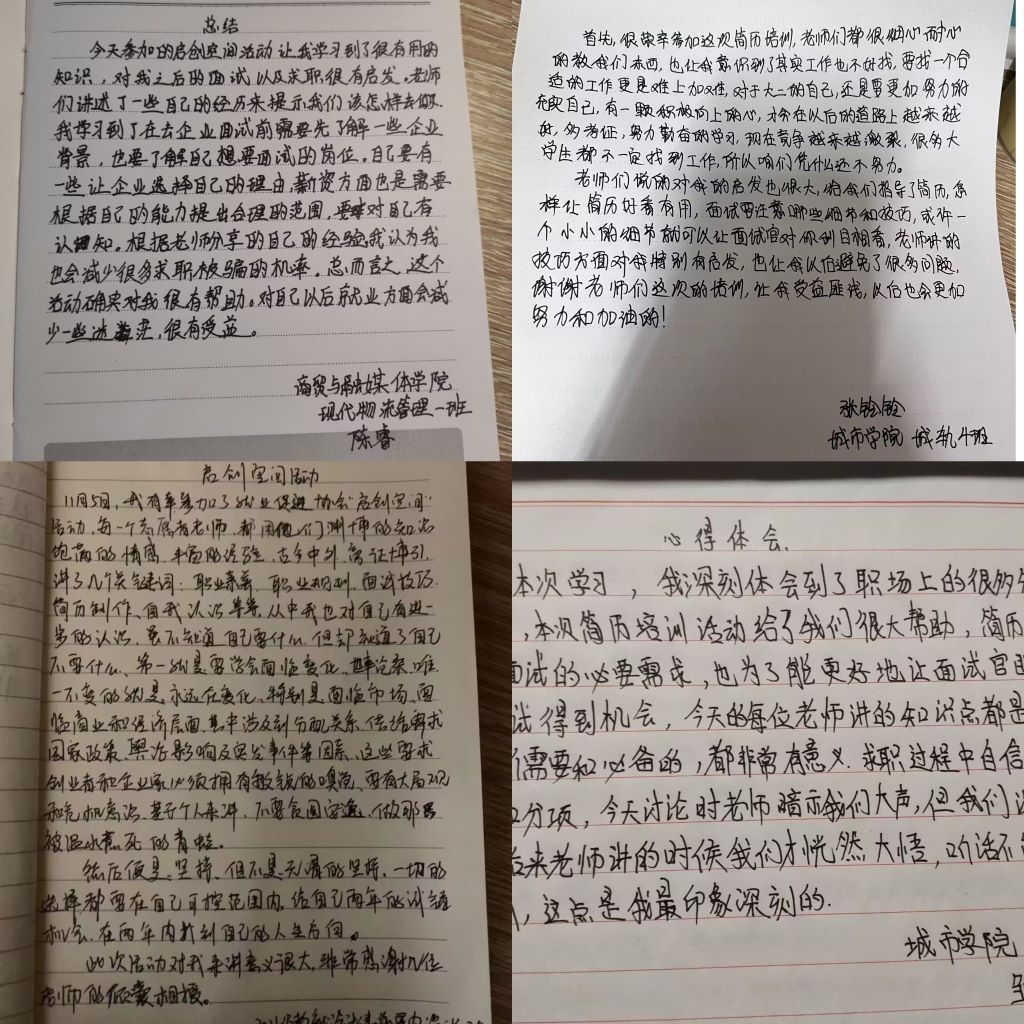 总结
今天参加的启创空间活动让我学习到了很有用的
知识，对我之后的面试以及求职很有启发。老师
们讲述了一些自己的经历来提示我们该怎样去做。
我学习到了在去企业面试前需要先了解一些企业
背景，也要了解自己想要面试的岗位。自己要有
一些让企业选择自己的理由，薪资方面也是需要
根据自己的能力提出合理的范围，要对自己有
认知。根据老师分享的自己的经验，我认为我
也会减少很多求职被骗的机率。总而言之，这个
活动确实对我很有帮助。对自己以后就业方面会减
少一些迷茫，很有受益。
商贸与融媒体学院
现代物流管理一班
陈睿
首先，很荣幸参加这次简历培训，老师们都很细心耐心
的教我们东西，也让我意识到了其实工作也不好找，要找一个合
适的工作更是难上加难，对于大二的自己，还是要更加努力的
充取自己，有一颗积极向上的心，才会在以后的道路上越来越
好，多考证，努力勤奋的学习，现在竞争越来越激裂，很多大
学生都不一定找到工作，所以咱们凭什么还不努力。
老师们说的对我的启发也很大，给我们指导了简历，怎
样让简历好看有用，面试要注意哪些细节和技巧，或许一
个小小的细节就可以让面试官对你刮目相看，老师讲的
技巧方面对我特别有启发，也让我以后避免了很多问题，
谢谢老师们这次的培训，让我受益匪浅，以后也会更加
努力和加油的！
张铃铃
城市学院 城轨4班
启创空间活动
11月5日，我有幸参加了就业促进协会"启创空间"
活动，每一个志愿者老师，都用他们渊博的知识
饱满的情感，丰富的经验，古今中外，旁证博引，
讲了几个关键词：职业素养、职业规划、面试技巧、
简历制作、自我认识等等，从中我也对自己有进一
步的认识，竟不知道自己要什么，但却知道了自己
不要什么、第一就是要学会面临变化、世事沧桑，唯
一不变的就是永远在变化、特别是面临市场、面
临商业和经济层面，其中涉及到分配关系、供给需求
国家政策、舆论影响及突发事件等因素，这些要求
创业者和企业家必须拥有敏锐的嗅觉，要有大局观
和危机意识，基于个人来讲，不要贪图安逸，做那只
被温水煮死的青蛙。
然后便是坚持、但不是无谓的坚持，一切的
选择都要在自己可控范围内，给自己两年的试错
机会，在两年内找到自己的人生方向。
此次活动对我来讲意义很大，非常感谢几位
老师的倾囊相授。
心得体会
本次学习，我深刻体会到了职场上的很多
，本次简历培训活动给了我们很大帮助，简历
面试的必要需求，也为了能更好地让面试官
试得到机会，今天的每位老师讲的知识点都是
需要和必备的，都非常有意义.求职过程中自信
分项，今天讨论时老师暗示我们大声，但我们
后来老师讲的时候我们才恍然大悟，
，这点是我最印象深刻的.
城市学院